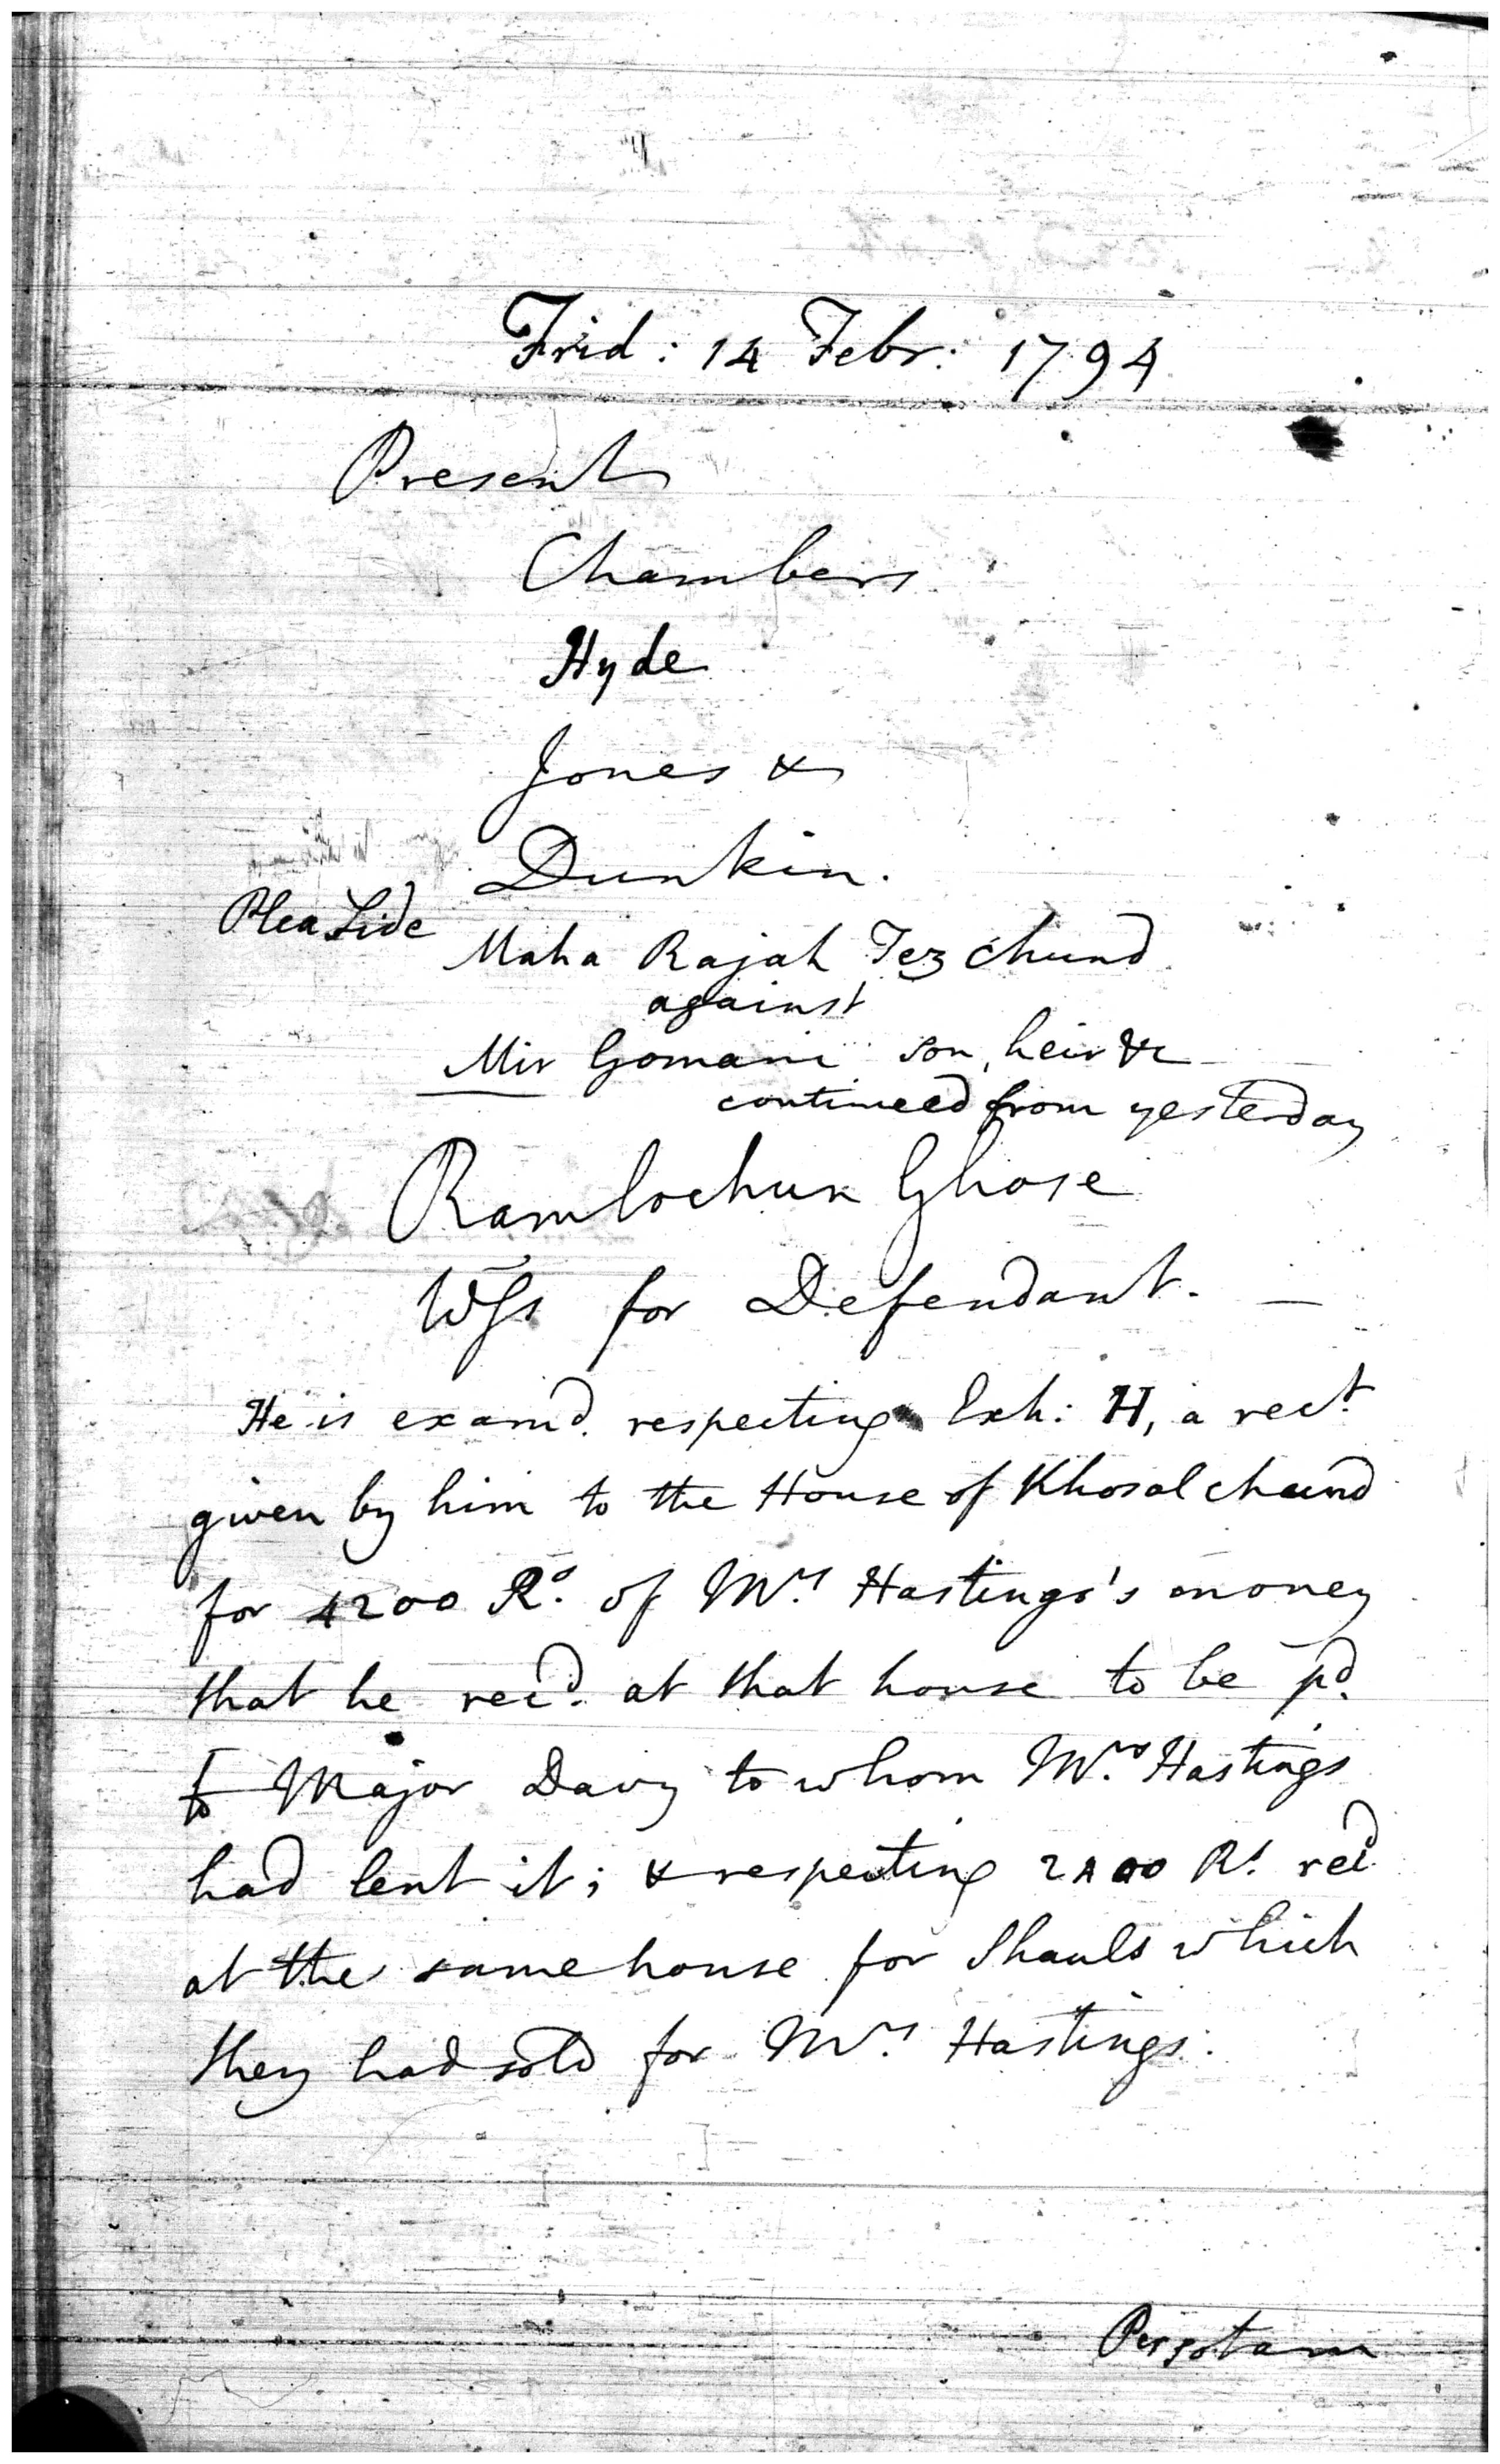 Frid: 14 Febr: 1794
Present
Chambers
Hyde
Jones &
Dunkin.
Plea Side
Maha Rajah Tez Chund
against
Mir Gomani son, heir &c
continued from yesterday
Ramlochun Ghose
Wss for Defendant. —
He is examd. respecting Exh: H, a rect.
given by him to the House of Khosalchund
for 4200 Rs. of Mrs. Hastings's money
that he recd. at that house to be pd.
to Major Davy to whom Mrs. Hastings
had lent it; & respecting Rs. recd
at the same house for Shauls which
they had sold for Mrs. Hastings.
Persotam